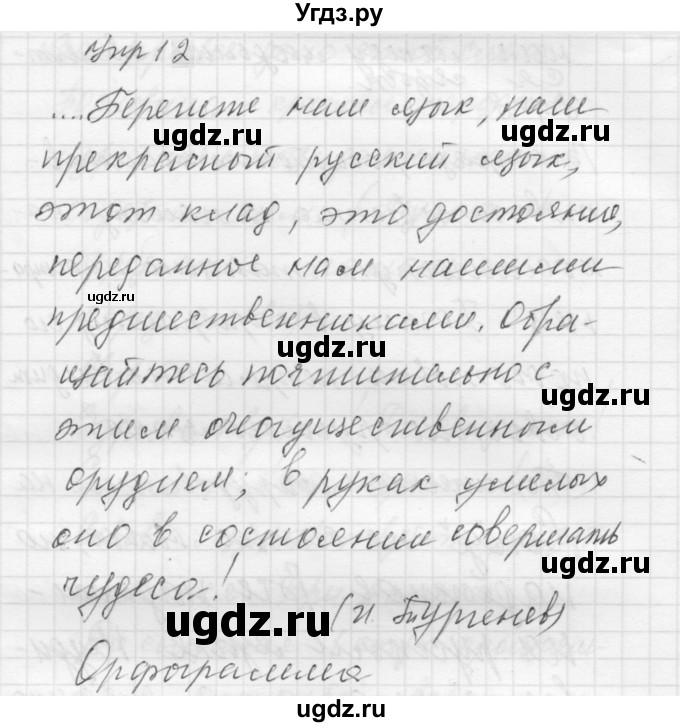 Угдз.ру
Упр 12
....Берегите наш язык, наш
ugdz.ru ugdz.ru
прекрасный русский язык,
этот клад, это достояние,
переданное нам нашими
ugdz.ru
предшественниками. Обра-
ugdz.ru ugdz.ru
щайтесь почтительно с
ugdz.ru
этим могущественным
орудием; в руках умелых
оно в состоянии совершать
чудеса!
ugdz.ru ugdz.ru
(И. Тургенев)
Орфограмма
ugdz.ru